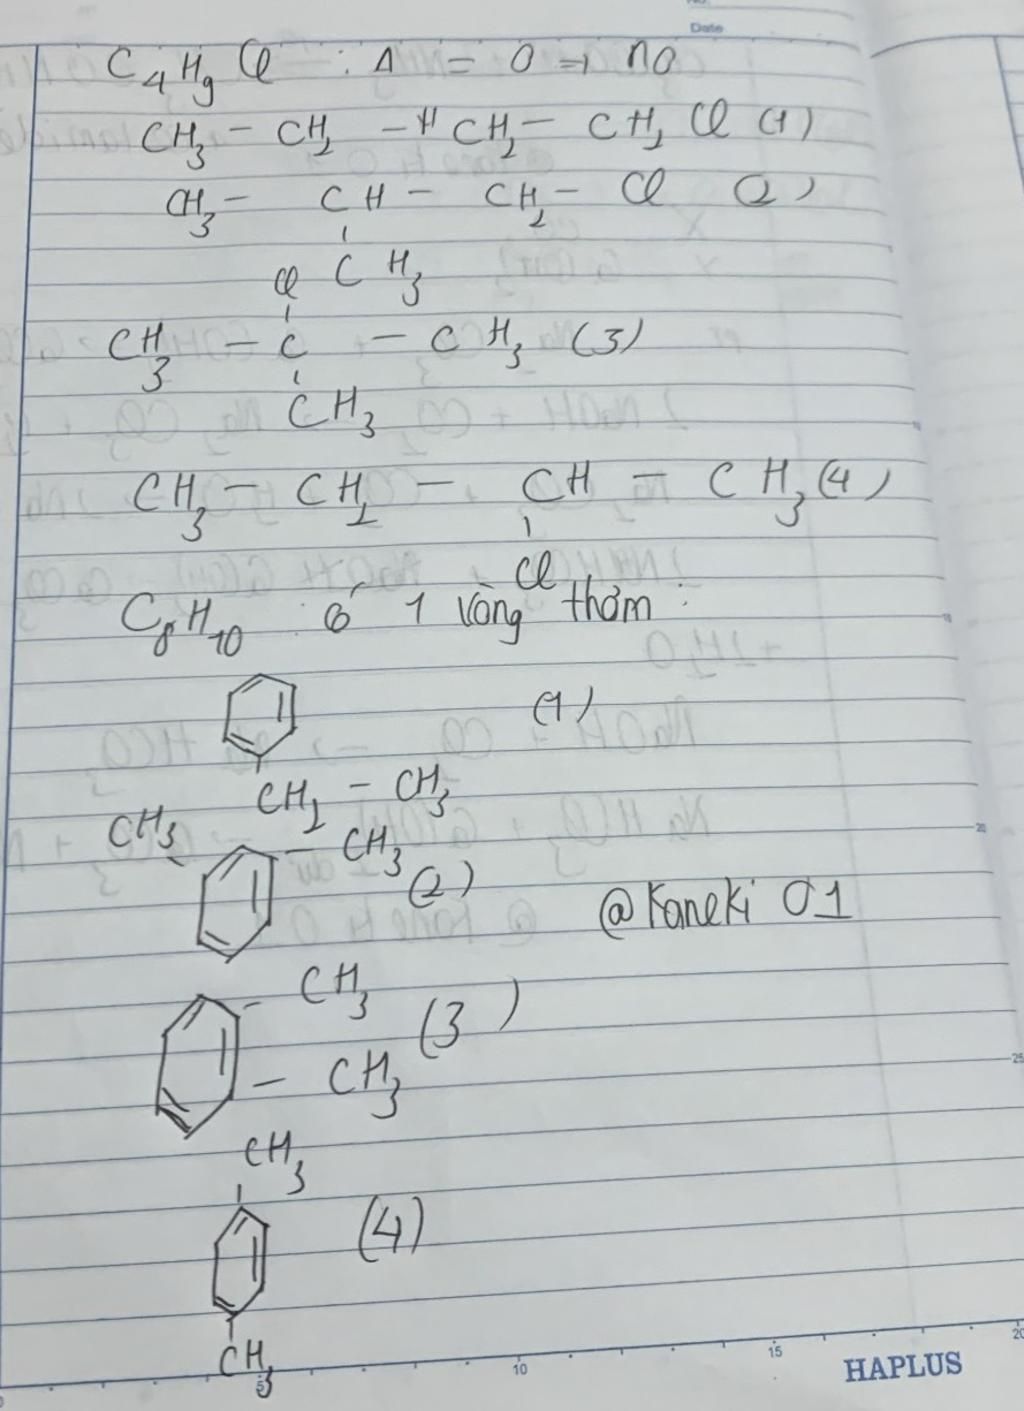 Date
C₄H₉Cl : Δ = 0 ⇒ no
CH₃ – CH₂ – CH₂ – CH₂ Cl (1)
CH₃ – CH – CH₂ – Cl (2)
CH₃
Cl
CH₃ – C – CH₃ (3)
CH₃
CH₃ – CH₂ – CH – CH₃ (4)
Cl
C₈H₁₀ : có 1 vòng thơm :
(1)
CH₂ – CH₃
CH₃ – CH₃
(2)
@Kaneki 01
CH₃
(3)
– CH₃
CH₃
(4)
CH₃
5 10 15 20
HAPLUS
20
25